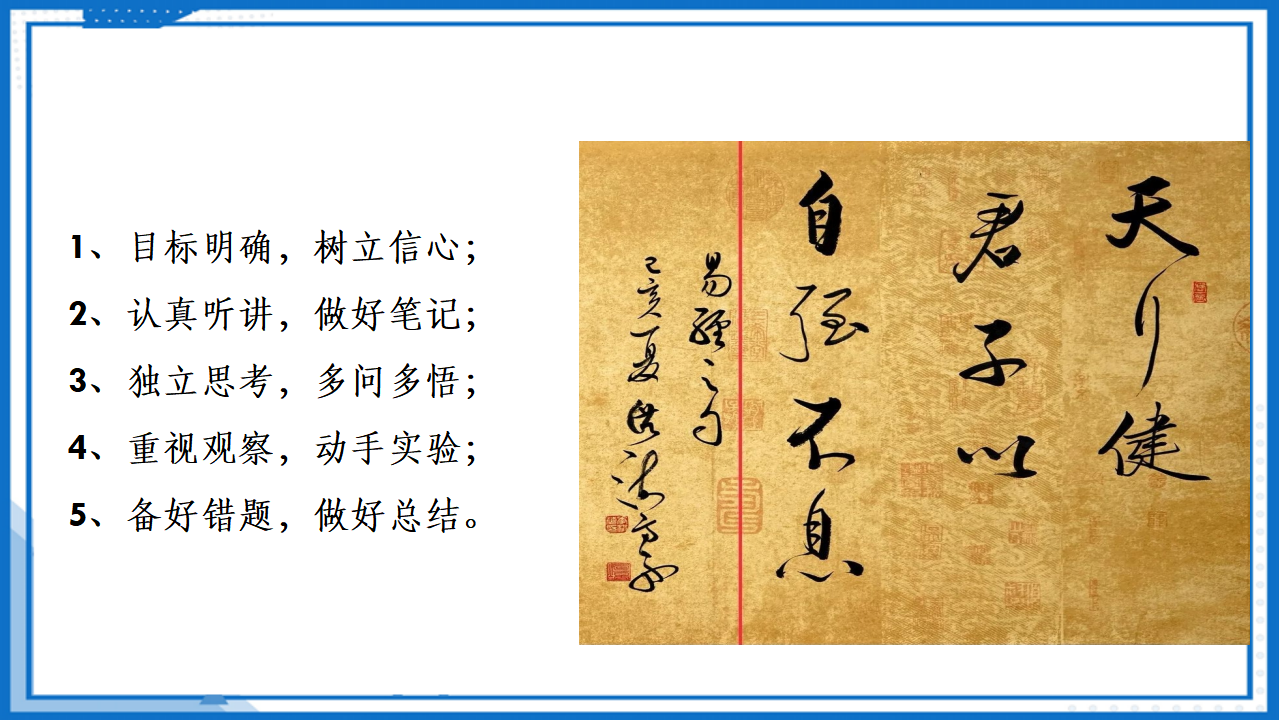 1、目标明确，树立信心；
2、认真听讲，做好笔记；
3、独立思考，多问多悟；
4、重视观察，动手实验；
5、备好错题，做好总结。
天行健
君子以
自强不息
易经之句
己亥夏